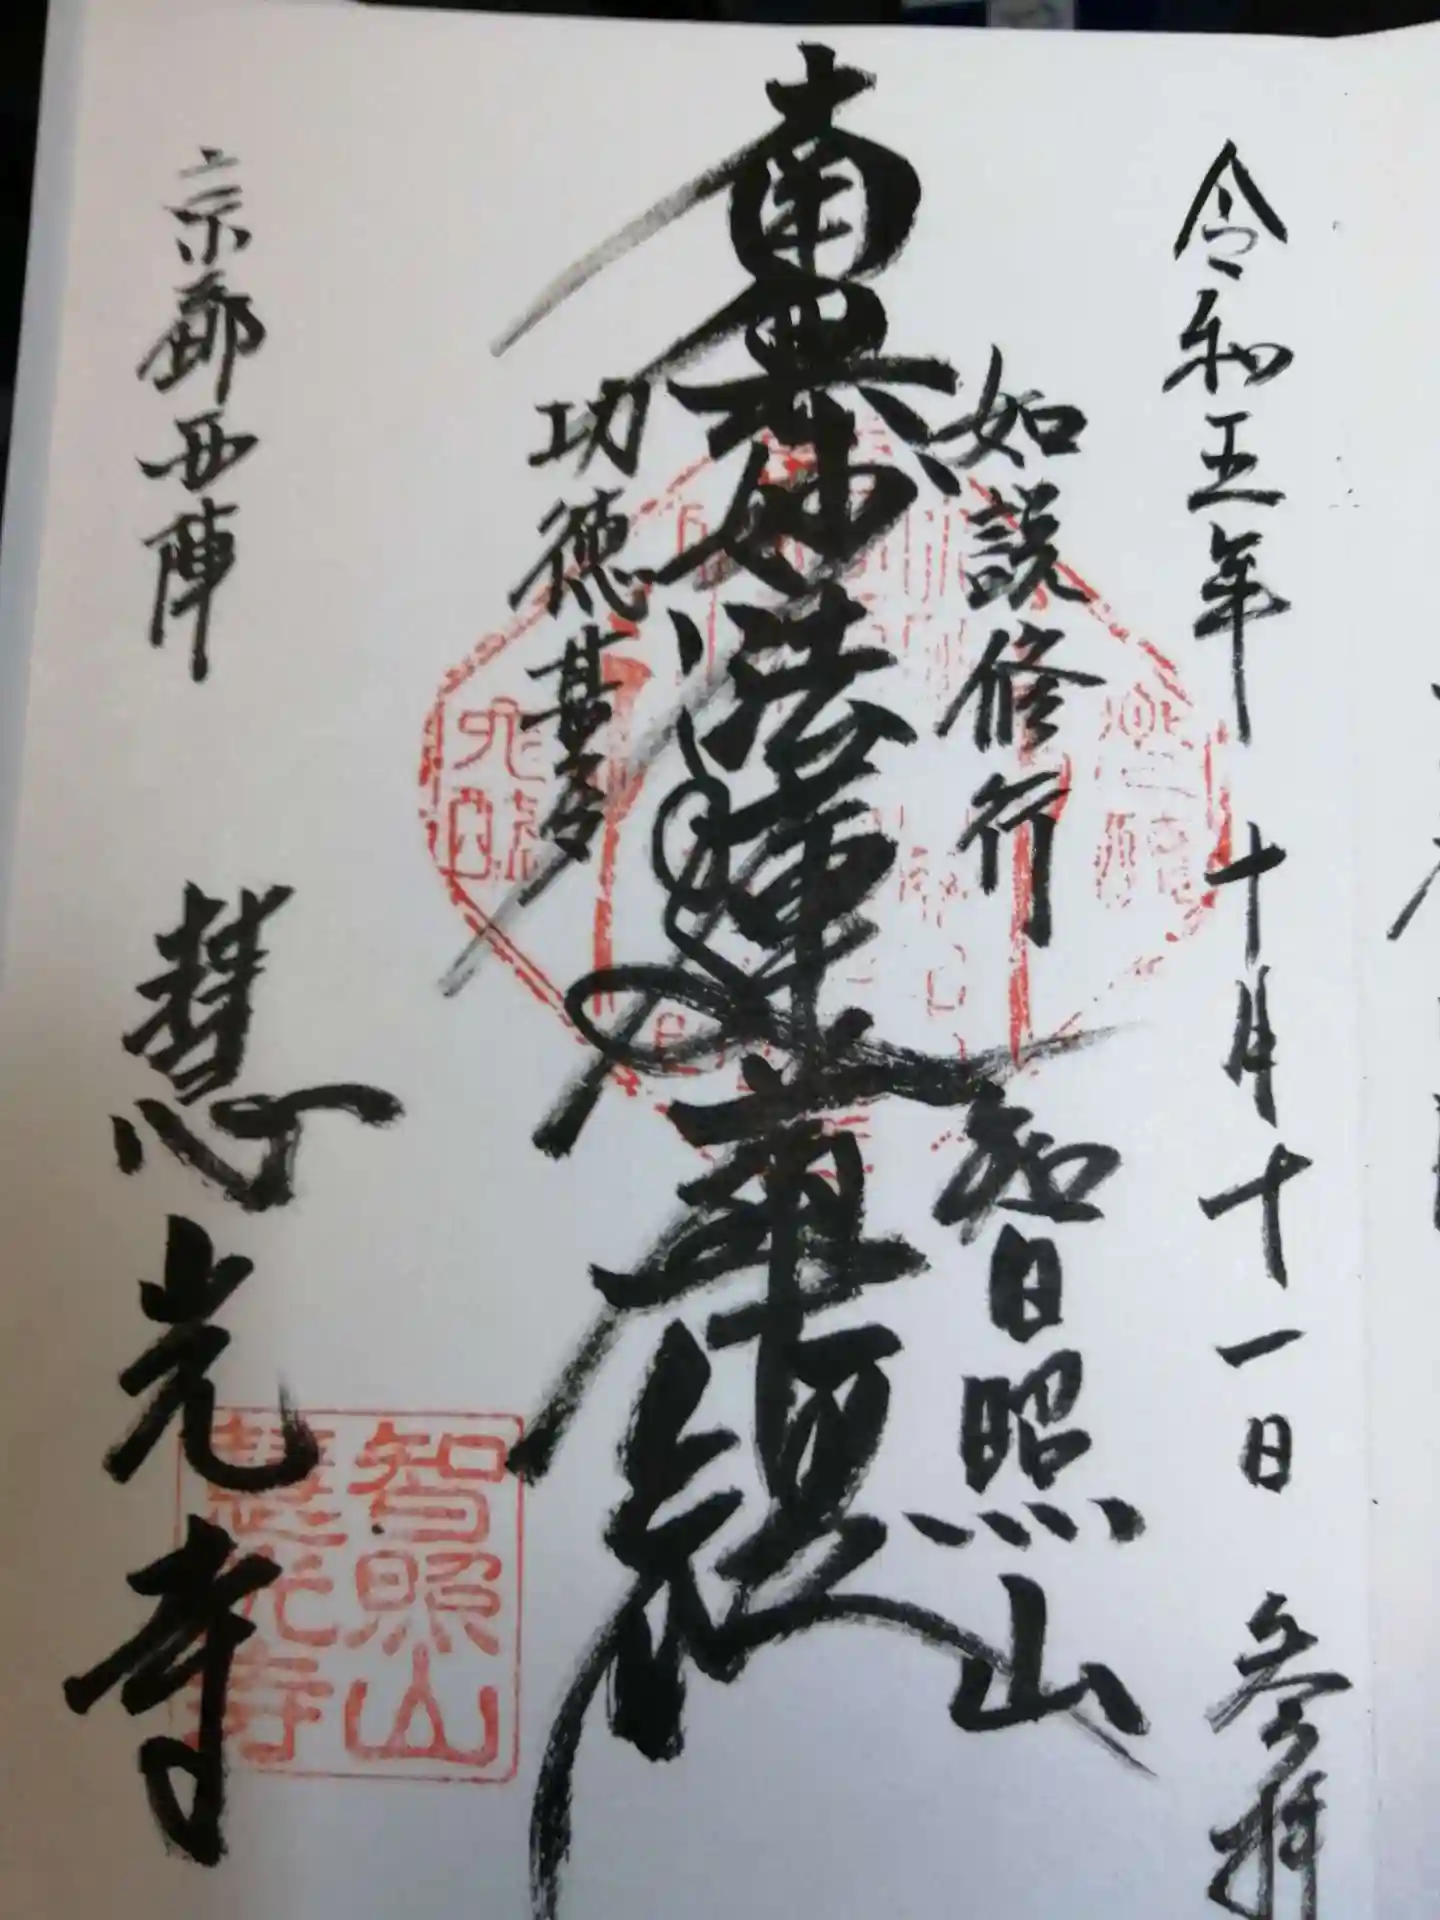 令和五年 十月十一日 参拝
如説修行 智日照山
南無妙法蓮華経
功徳甚多
京都西陣 慧光寺
智照山
慧光寺